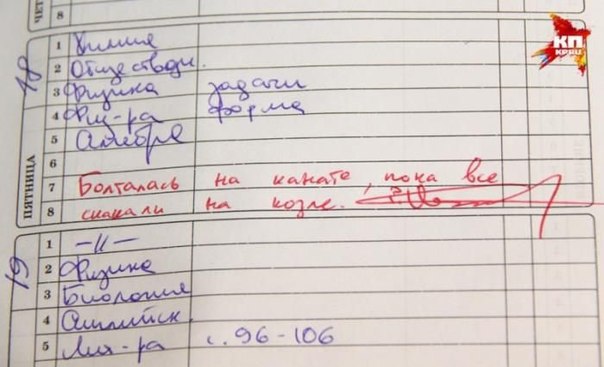 ЧЕТ
8
КП
18
ПЯТНИЦА
1 Химия
2 Обществозн.
3 Физика задачи
4 Физ-ра форма
5 Алгебра
6
7 Болталась на канате, пока все
8 скакали на козле.
19
1 —//—
2 Физика
3 Биология
4 Английск.
5 Лит-ра с. 96-106